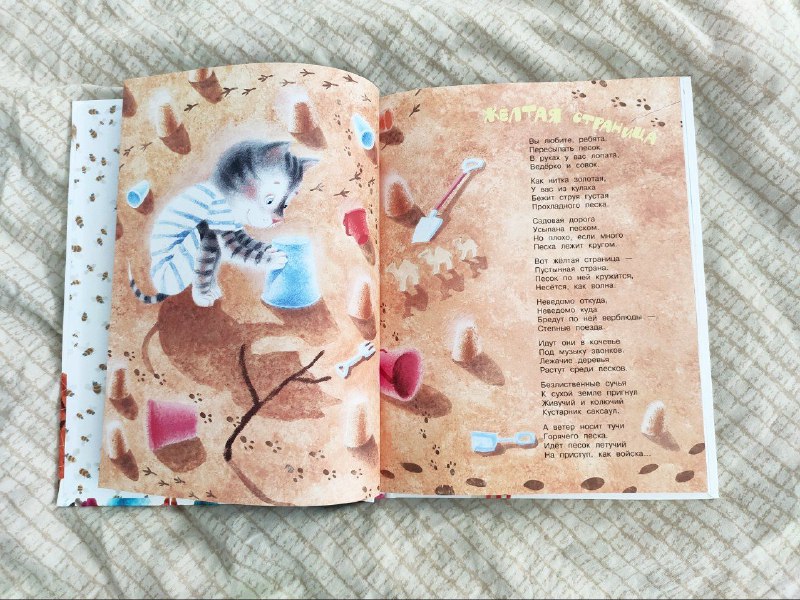 ЖЁЛТАЯ СТРАНИЦА
Вы любите, ребята,
Пересыпать песок.
В руках у вас лопата,
Ведёрко и совок.
Как нитка золотая,
У вас из кулака
Бежит струя густая
Прохладного песка.
Садовая дорога
Усыпана песком.
Но плохо, если много
Песка лежит кругом.
Вот жёлтая страница —
Пустынная страна.
Песок по ней кружится,
Несётся, как волна.
Неведомо откуда,
Неведомо куда
Бредут по ней верблюды —
Степные поезда.
Идут они в кочевье
Под музыку звонков.
Лежачие деревья
Растут среди песков.
Безлиственные сучья
К сухой земле пригнул
Живучий и колючий
Кустарник саксаул.
А ветер носит тучи
Горячего песка.
Идёт песок летучий
На приступ, как войска...